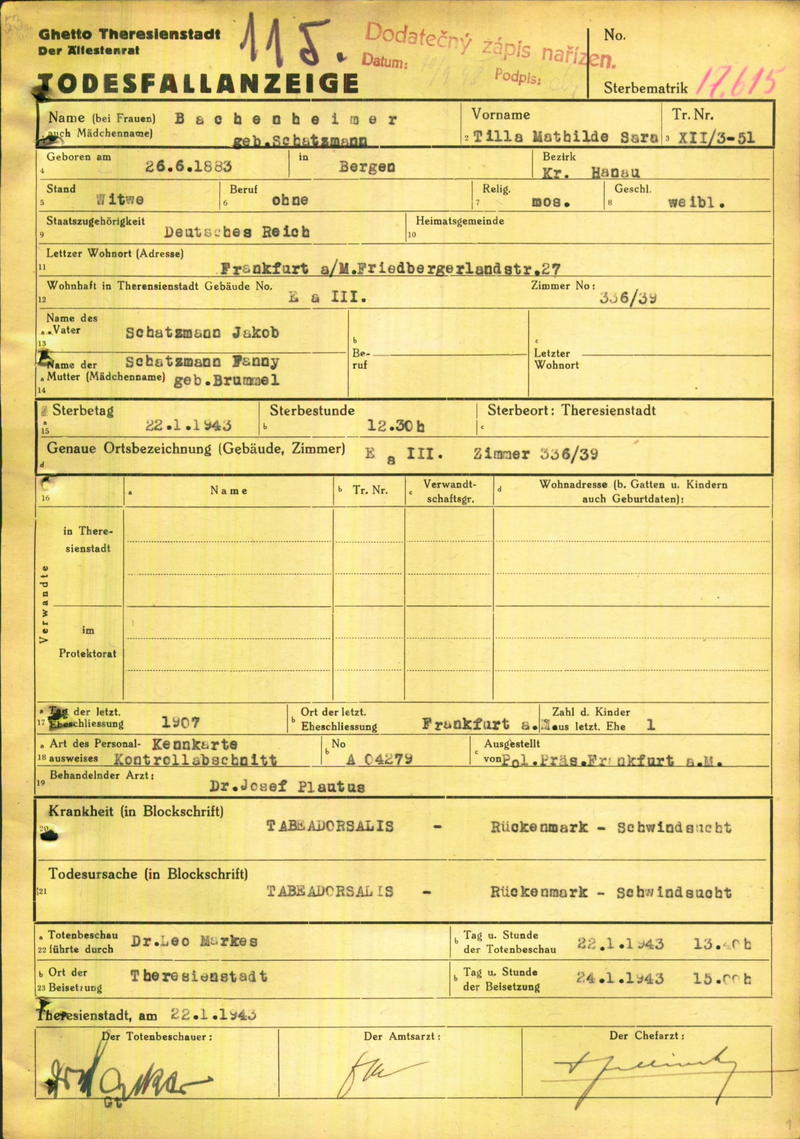 Ghetto Theresienstadt
Der Ältestenrat
TODESFALLANZEIGE
115.
Dodatečný zápis nařízen.
Datum:
Podpis:
No.
Sterbematrik 17.615
Name (bei Frauen) Bachenheimer
auch Mädchenname) geb.Schatzmann
Vorname
2 Tilla Mathilde Sara
Tr. Nr.
3 XII/3-51
Geboren am
4 26.6.1883
in Bergen
Bezirk
Kr. Hanau
Stand
5 Witwe
Beruf
6 ohne
Relig.
7 mos.
Geschl.
8 weibl.
Staatszugehörigkeit
9 Deutsches Reich
Heimatsgemeinde
10
Letzter Wohnort (Adresse)
11 Frankfurt a/M.Friedbergerlandstr.27
Wohnhaft in Therensienstadt Gebäude No.
12 E a III.
Zimmer No:
336/39
Name des
a Vater Schatzmann Jakob
13
Name der Schatzmann Fanny
a Mutter (Mädchenname) geb.Brummel
14
b
Be-
ruf
c
Letzter
Wohnort
a Sterbetag
15 22.1.1943
Sterbestunde
b 12.30h
Sterbeort: Theresienstadt
c
Genaue Ortsbezeichnung (Gebäude, Zimmer) E a III. Zimmer 336/39
d
16
a Name
b Tr. Nr.
c Verwandt-
schaftsgr.
d Wohnadresse (b. Gatten u. Kindern
auch Geburtdaten):
Verwandte
in There-
sienstadt
im
Protektorat
a Tag der letzt.
17 Eheschliessung 1907
b Ort der letzt.
Eheschliessung Frankfurt a.M.
Zahl d. Kinder
aus letzt. Ehe 1
a Art des Personal- Kennkarte
18 ausweises Kontrollabschnitt
b No
A 04279
c Ausgestellt
von Pol.Präs.Frankfurt a.M.
Behandelnder Arzt:
19 Dr.Josef Plautus
Krankheit (in Blockschrift)
20 TABEADORSALIS - Rückenmark - Schwindsucht
Todesursache (in Blockschrift)
21 TABEADORSALIS - Rückenmark - Schwindsucht
a Totenbeschau
22 führte durch Dr.Leo Markes
b Tag u. Stunde
der Totenbeschau 22.1.1943 13.00h
b Ort der
23 Beisetzung Theresienstadt
b Tag u. Stunde
der Beisetzung 24.1.1943 15.00h
Theresienstadt, am 22.1.1943
Der Totenbeschauer:
Der Amtsarzt:
Der Chefarzt:
Gt